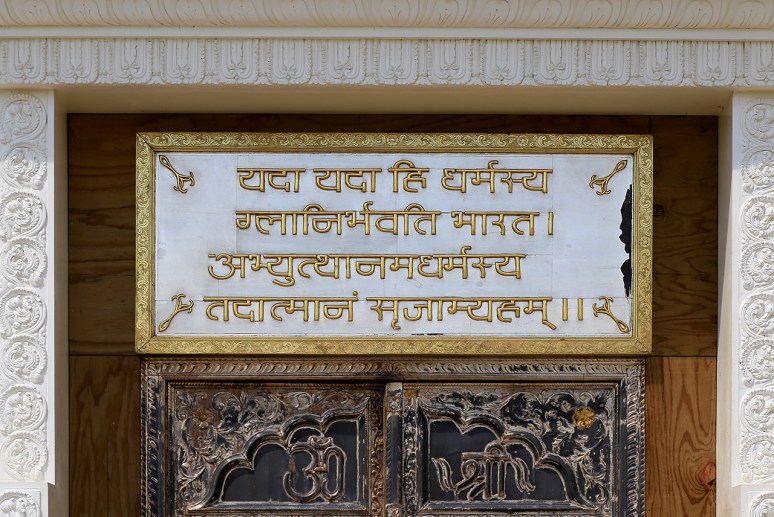 यदा यदा हि धर्मस्य
ग्लानिर्भवति भारत।
अभ्युत्थानमधर्मस्य
तदात्मानं सृजाम्यहम्।।
ॐ श्री